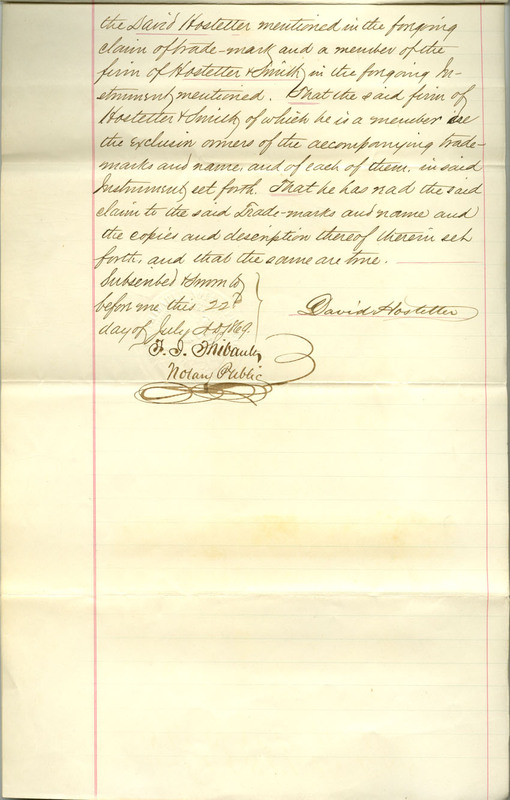 the David Hostetter mentioned in the forgoing
claim of trade-mark and a member of the
firm of Hostetter & Smith, in the forgoing In-
strument, mentioned. That the said firm of
Hostetter & Smith, of which he is a member are
the exclusive owners of the accompanying trade-
marks and name, and of each of them, in said
Instrument, set forth. That he has read the said
claim to the said Trade-marks and name and
the copies and description thereof therein set
forth, and that the same are true.
Subscribed & Sworn to
before me this 22d
day of July A D 1869
David Hostetter
F. J. Thibault,
Notary Public